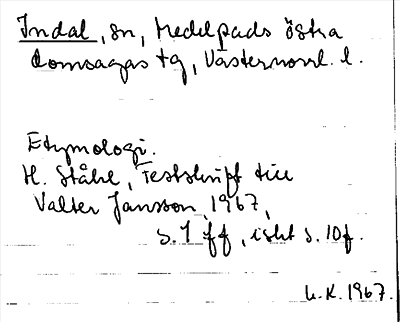 Indal, sn, Medelpads östra
domsagas tg, Västernorrl. l.
Etymologi.
H. Ståhl, Festskrift till
Valter Jansson 1967,
s. 1 ff, iskt s. 10f.
L.K. 1967.